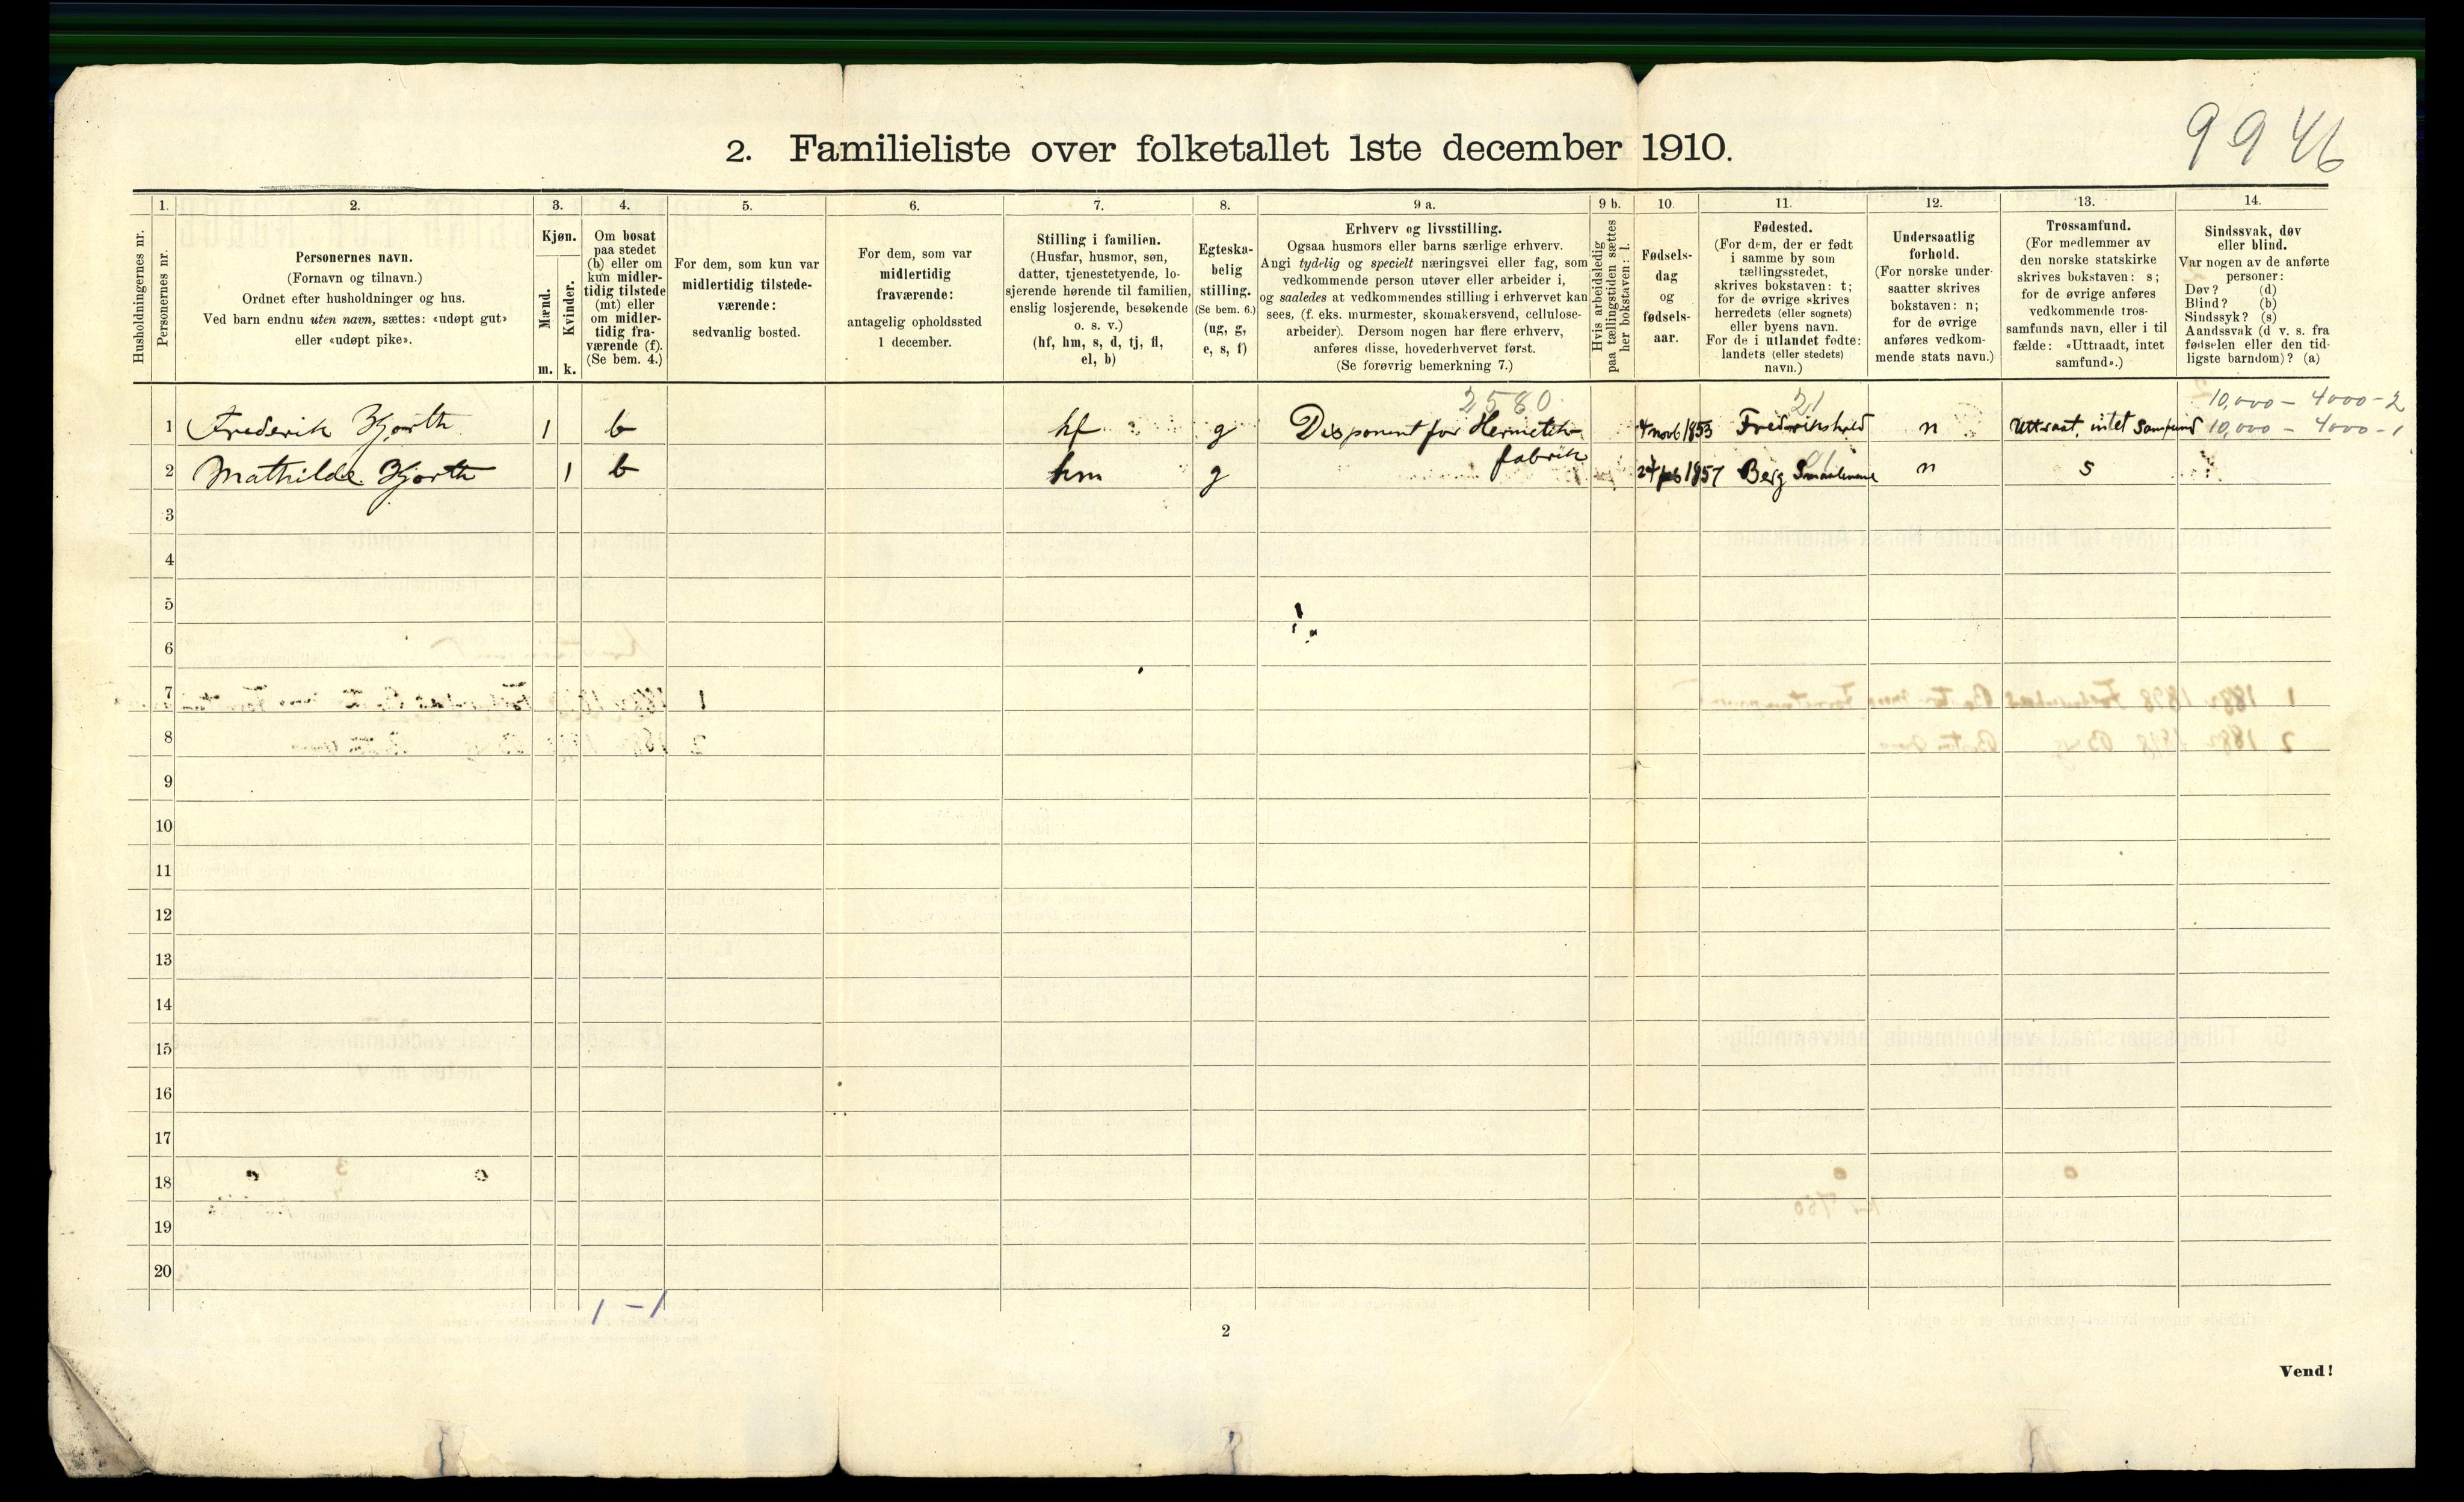 9946
2. Familieliste over folketallet 1ste december 1910.
Husholdningernes nr.
1.
Personernes nr.
2.
Personernes navn.
(Fornavn og tilnavn.)
Ordnet efter husholdninger og hus.
Ved barn endnu uten navn, sættes: «udøpt gut»
eller «udøpt pike».
3.
Kjøn.
Mænd.
Kvinder.
m. k.
4.
Om bosat
paa stedet
(b) eller om
kun midler-
tidig tilstede
(mt) eller
om midler-
tidig fra-
værende (f).
(Se bem. 4.)
5.
For dem, som kun var
midlertidig tilstede-
værende:
sedvanlig bosted.
6.
For dem, som var
midlertidig
fraværende:
antagelig opholdssted
1 december.
7.
Stilling i familien.
(Husfar, husmor, søn,
datter, tjenestetyende, lo-
sjerende hørende til familien,
enslig losjerende, besøkende
o. s. v.)
(hf, hm, s, d, tj, fl,
el, b)
8.
Egteska-
belig
stilling.
(Se bem. 6.)
(ug, g,
e, s, f)
9 a.
Erhverv og livsstilling.
Ogsaa husmors eller barns særlige erhverv.
Angi tydelig og specielt næringsvei eller fag, som
vedkommende person utøver eller arbeider i,
og saaledes at vedkommendes stilling i erhvervet kan
sees, (f. eks. murmester, skomakersvend, cellulose-
arbeider). Dersom nogen har flere erhverv,
anføres disse, hovederhvervet først.
(Se forøvrig bemerkning 7.)
9 b.
Hvis arbeidsledig
paa tællingstiden sættes
her bokstaven: l.
10.
Fødsels-
dag
og
fødsels-
aar.
11.
Fødested.
(For dem, der er født
i samme by som
tællingsstedet,
skrives bokstaven: t;
for de øvrige skrives
herredets (eller sognets)
eller byens navn.
For de i utlandet fødte:
landets (eller stedets)
navn.)
12.
Undersaatlig
forhold.
(For norske under-
saatter skrives
bokstaven: n;
for de øvrige
anføres vedkom-
mende stats navn.)
13.
Trossamfund.
(For medlemmer av
den norske statskirke
skrives bokstaven: s;
for de øvrige anføres
vedkommende tros-
samfunds navn, eller i til
fælde: «Uttraadt, intet
samfund».)
14.
Sindssvak, døv
eller blind.
Var nogen av de anførte
personer:
Døv? (d)
Blind? (b)
Sindssyk? (s)
Aandssvak (d v. s. fra
fødselen eller den tid-
ligste barndom)? (a)
2580 21 10,000 - 4000 - 2
1 Frederik Hjorth 1 b hf g Disponent for Hermetik- 4 novb 1853 Fredrikshald n Uttraat, intet Samfund 10,000 - 4000 - 1
fabrik
01
2 Mathilde Hjorth 1 b hm g 24 feb 1857 Berg Smaalenene n s
3
4
5
6
7
8
9
10
11
12
13
14
15
16
17
18
19
20
1 - 1
2
Vend!